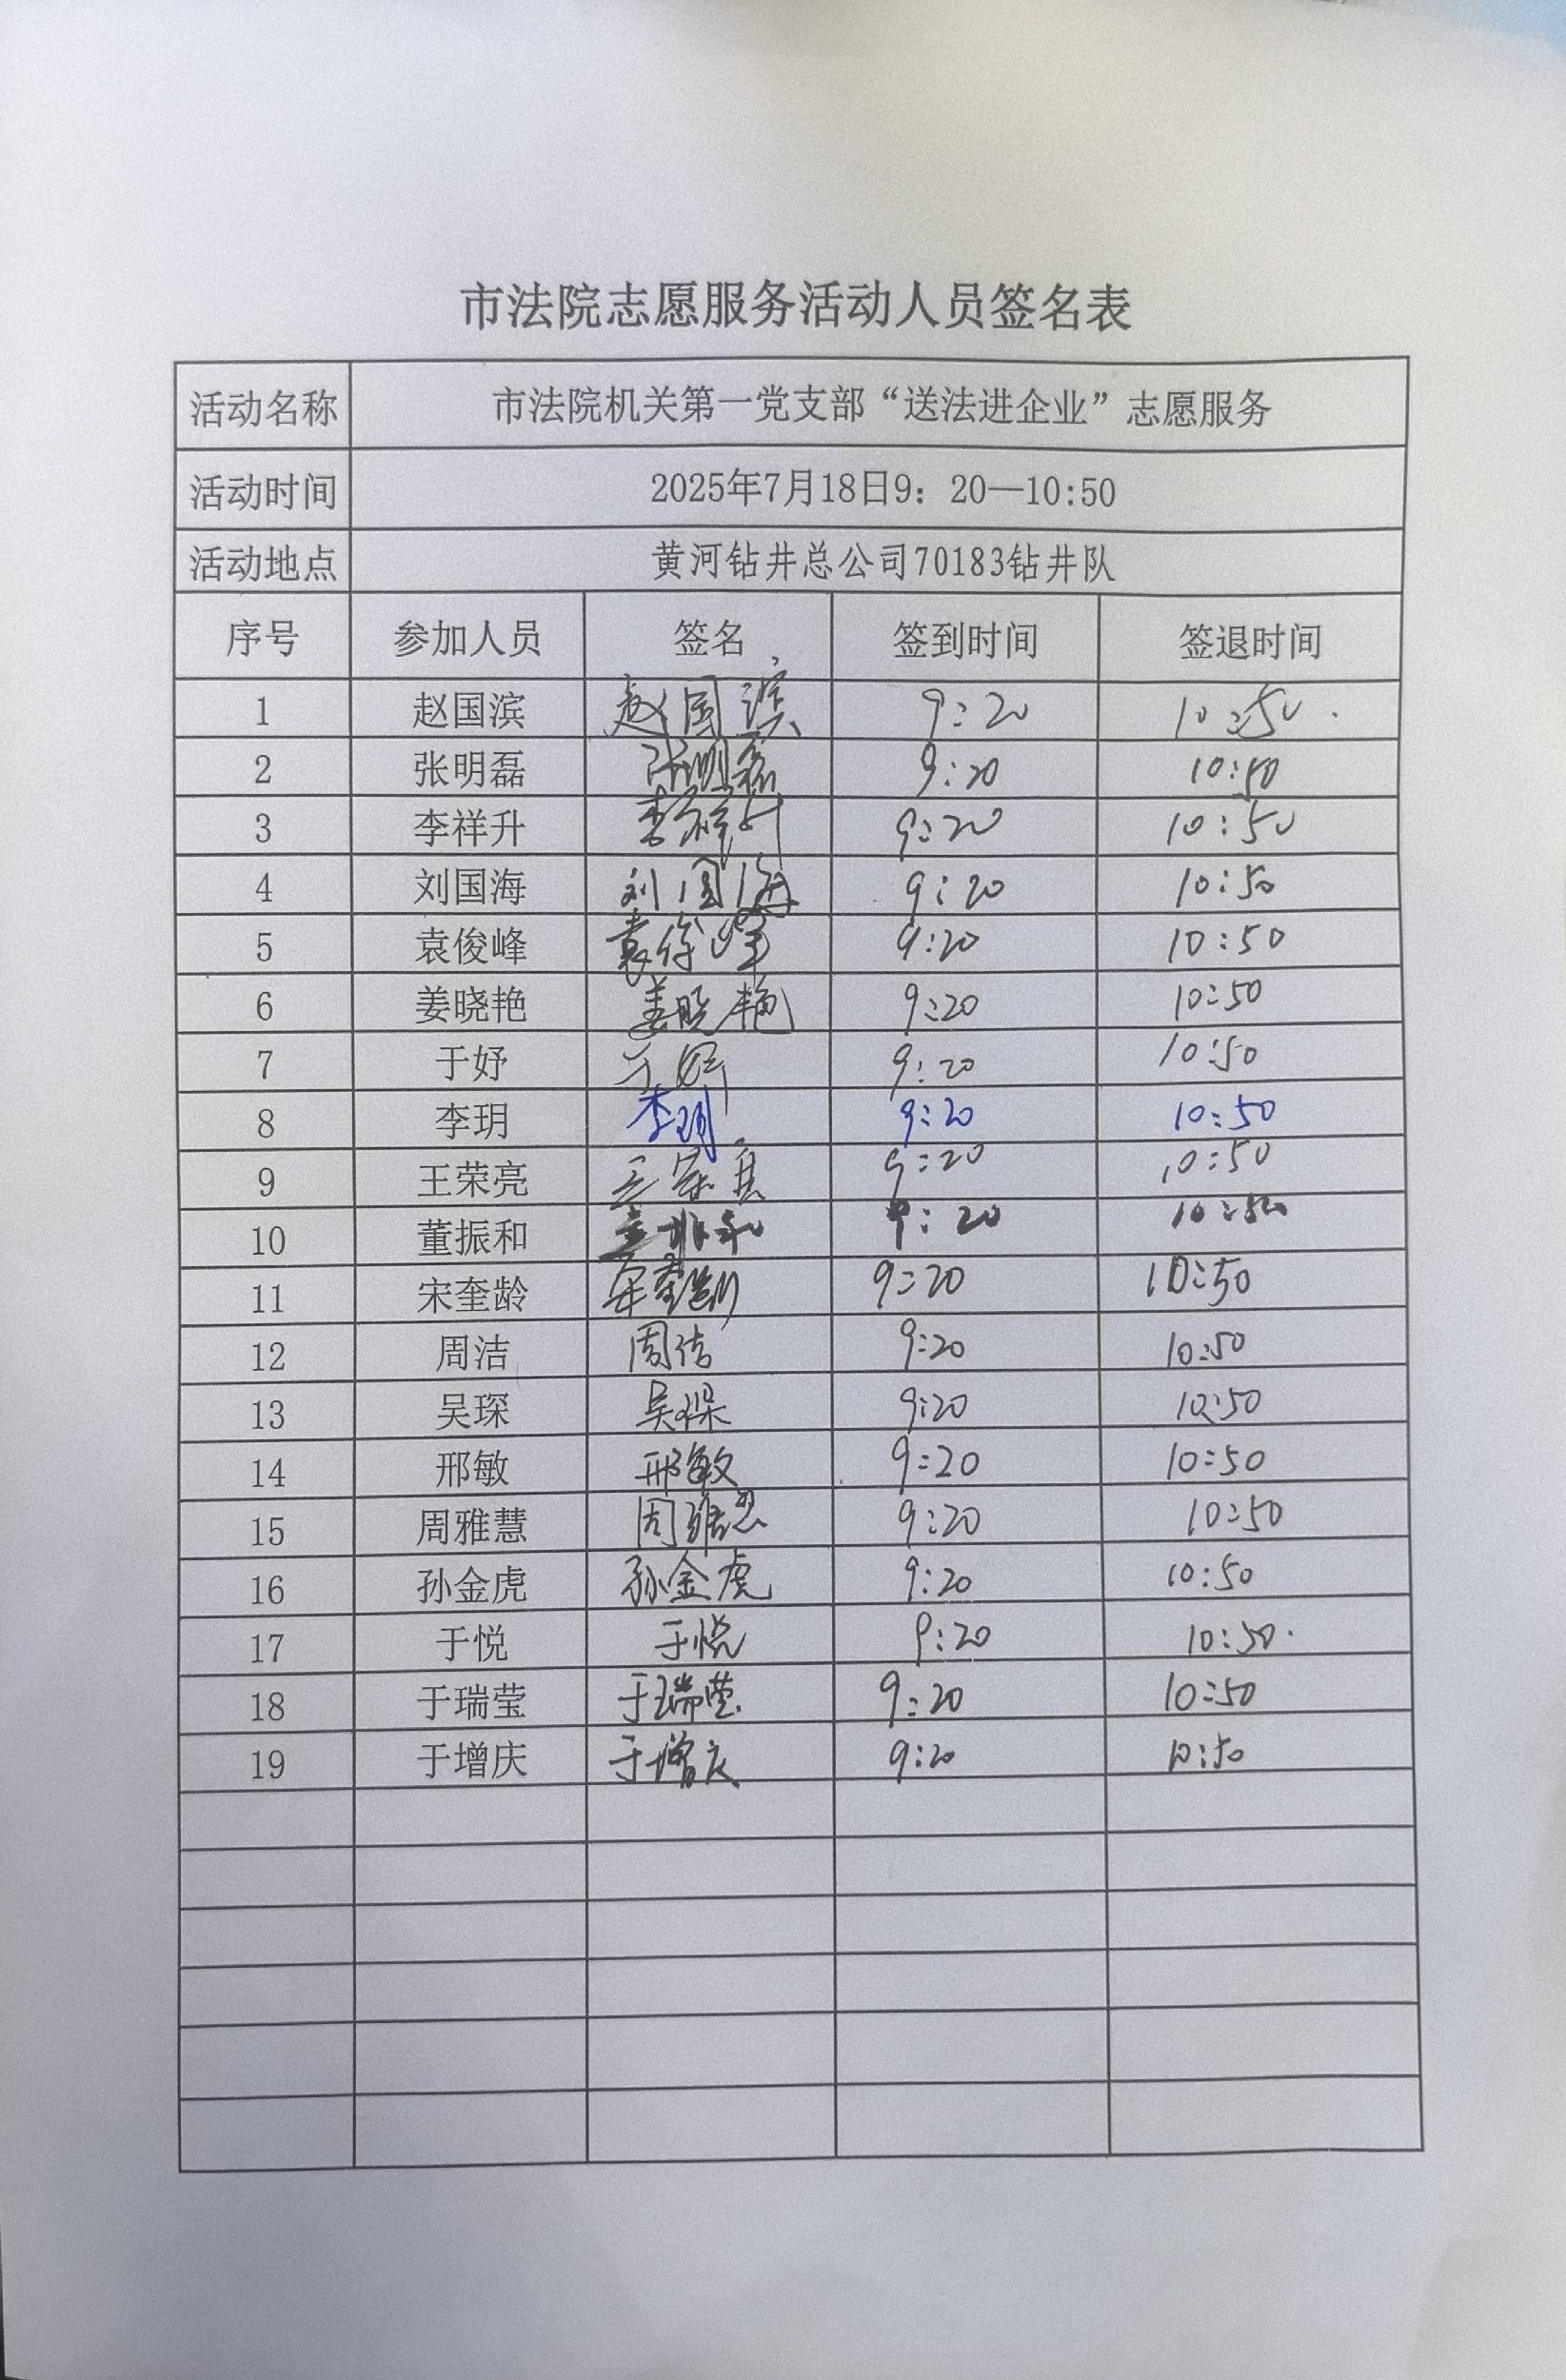 市法院志愿服务活动人员签名表
活动名称 市法院机关第一党支部“送法进企业”志愿服务
活动时间 2025年7月18日9：20—10:50
活动地点 黄河钻井总公司70183钻井队
序号 参加人员 签名 签到时间 签退时间
1 赵国滨 赵国滨 9:20 10:50
2 张明磊 张明磊 9:20 10:50
3 李祥升 李祥升 9:20 10:50
4 刘国海 刘国海 9:20 10:50
5 袁俊峰 袁俊峰 9:20 10:50
6 姜晓艳 姜晓艳 9:20 10:50
7 于妤 于妤 9:20 10:50
8 李玥 李玥 9:20 10:50
9 王荣亮 王荣亮 9:20 10:50
10 董振和 董振和 9:20 10:50
11 宋奎龄 宋奎龄 9:20 10:50
12 周洁 周洁 9:20 10:50
13 吴琛 吴琛 9:20 10:50
14 邢敏 邢敏 9:20 10:50
15 周雅慧 周雅慧 9:20 10:50
16 孙金虎 孙金虎 9:20 10:50
17 于悦 于悦 9:20 10:50
18 于瑞莹 于瑞莹 9:20 10:50
19 于增庆 于增庆 9:20 10:50